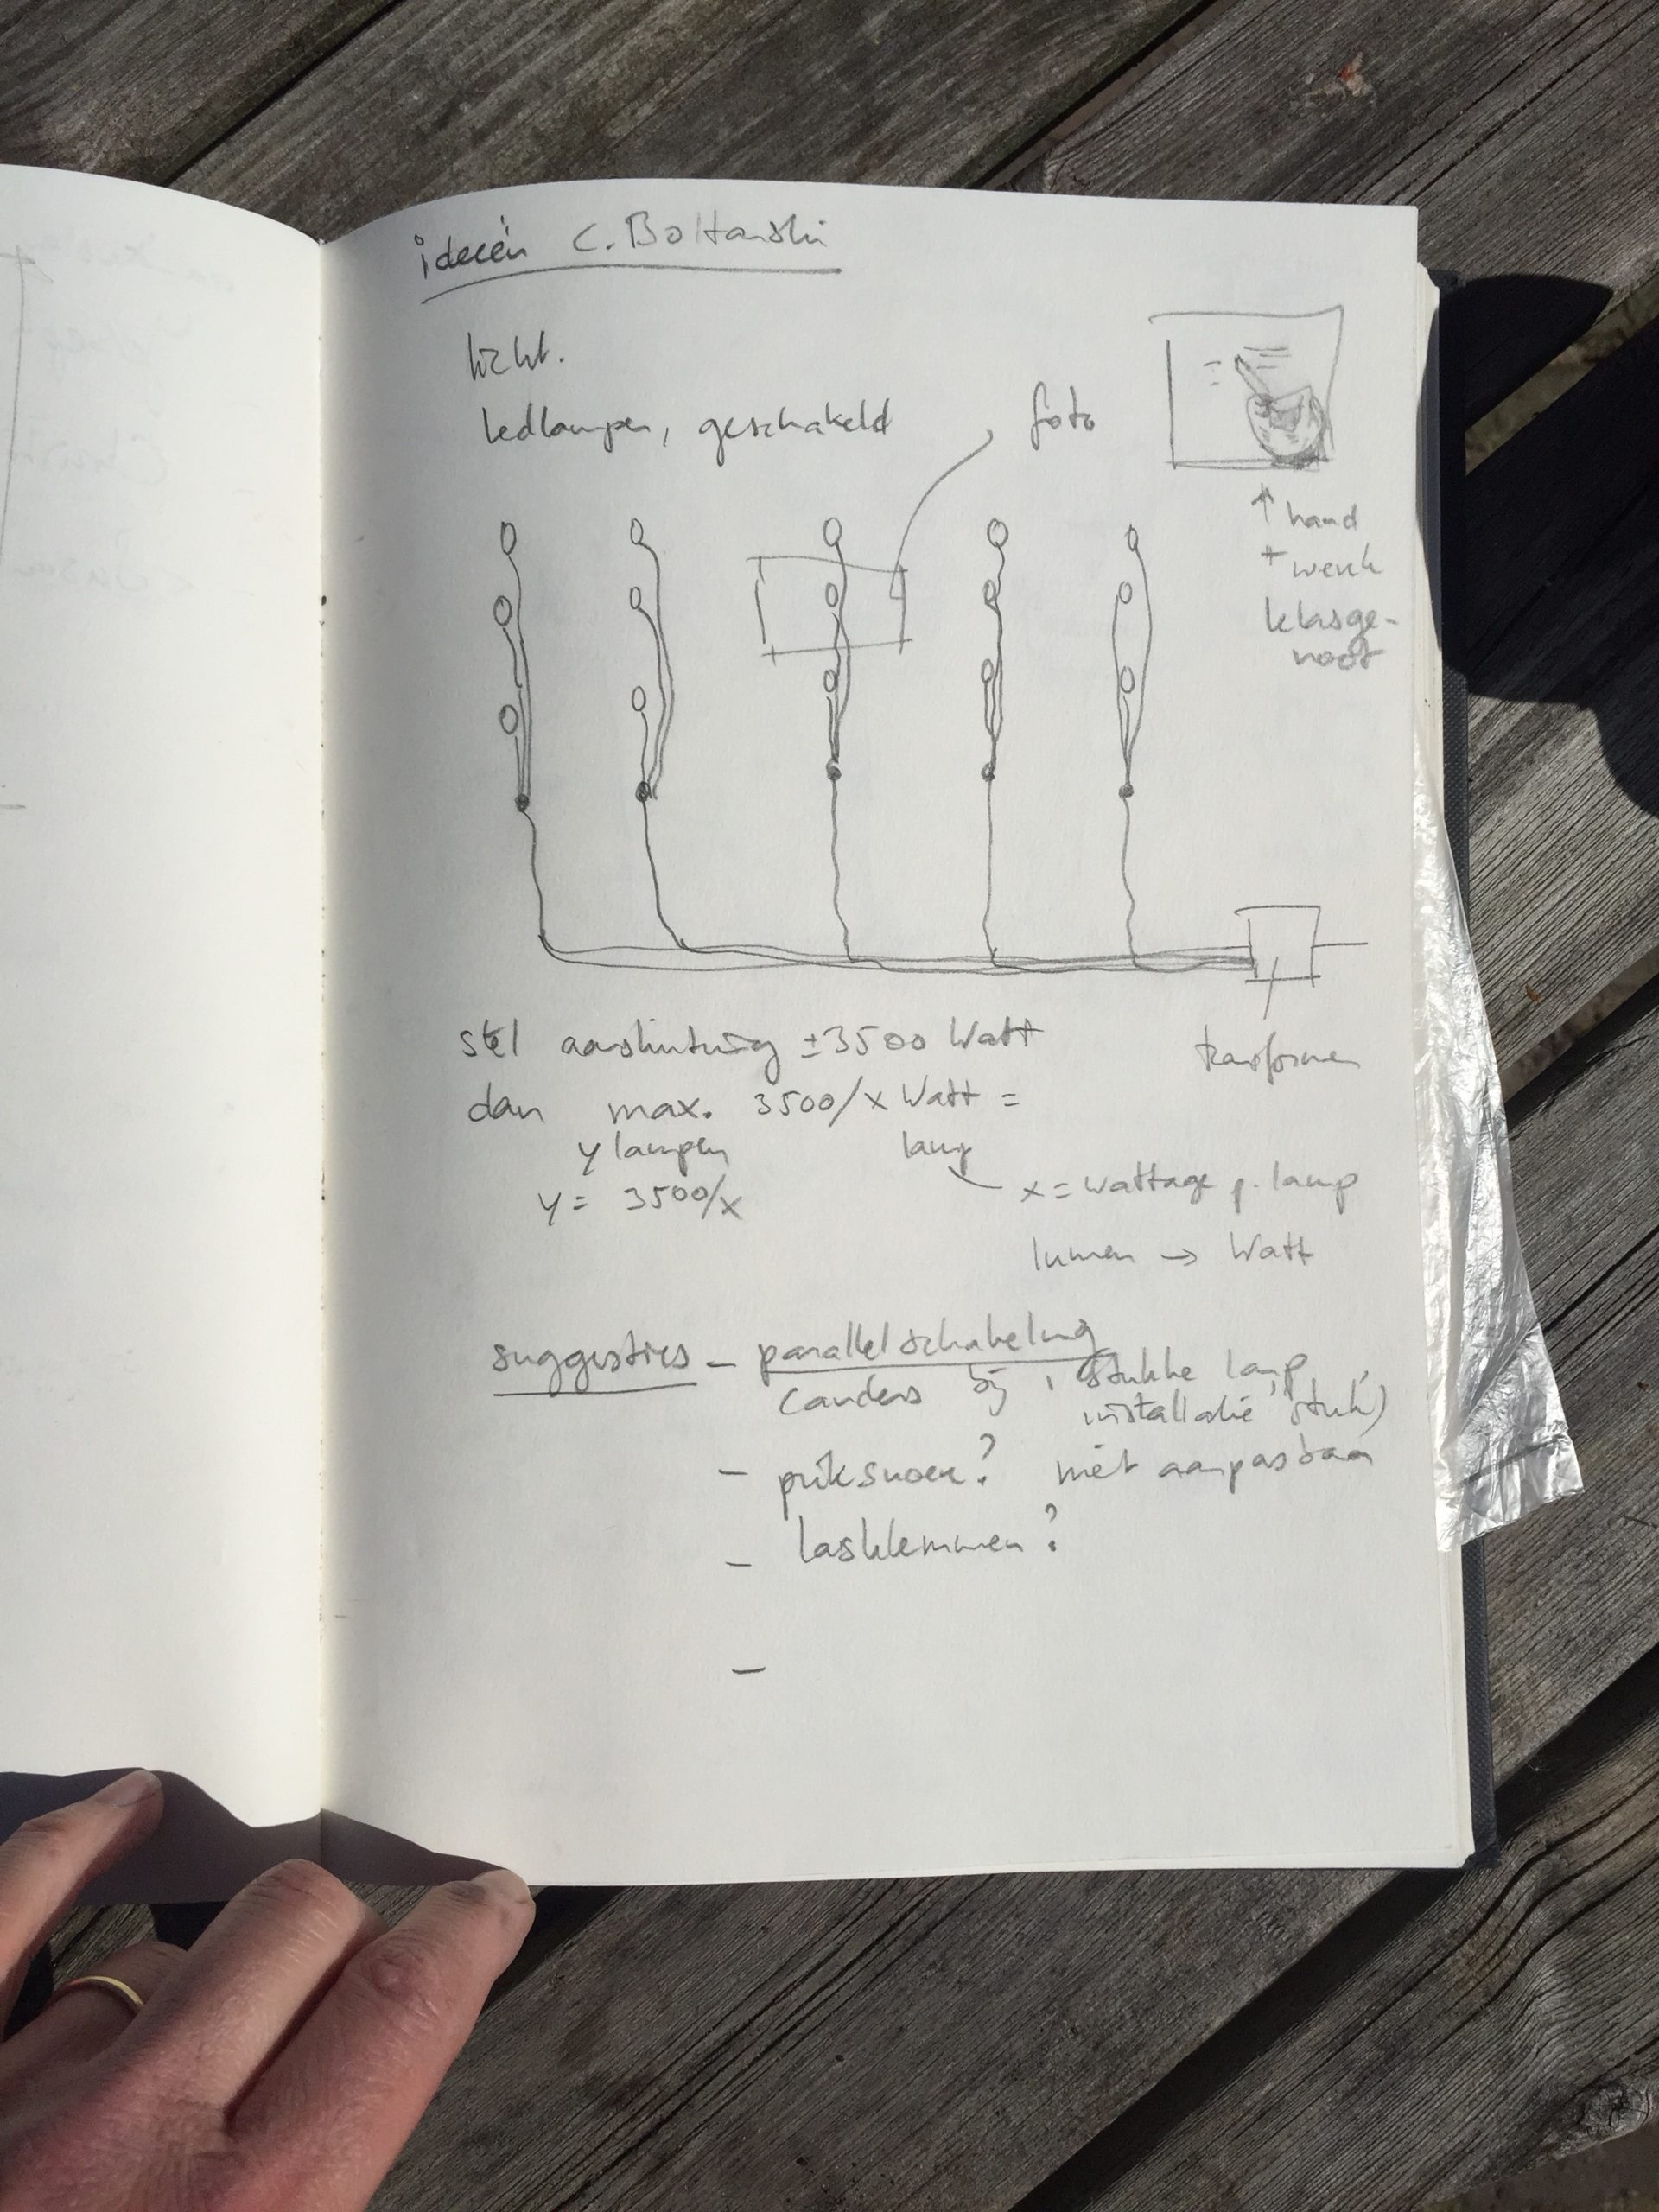 ideeën C. Boltanski
licht.
ledlampen, geschakeld
foto
↑ hand
+ werk
klasge-
noot
stel aansluiting ±3500 Watt
transformer
dan max. 3500/x Watt =
y lampen
lamp
y = 3500/x
x = wattage p. lamp
lumen → Watt
suggesties – parallelschakeling
(anders bij 1 stukke lamp,
installatie stuk)
– priksnoer? niet aanpasbaar
– lasklemmen?
–